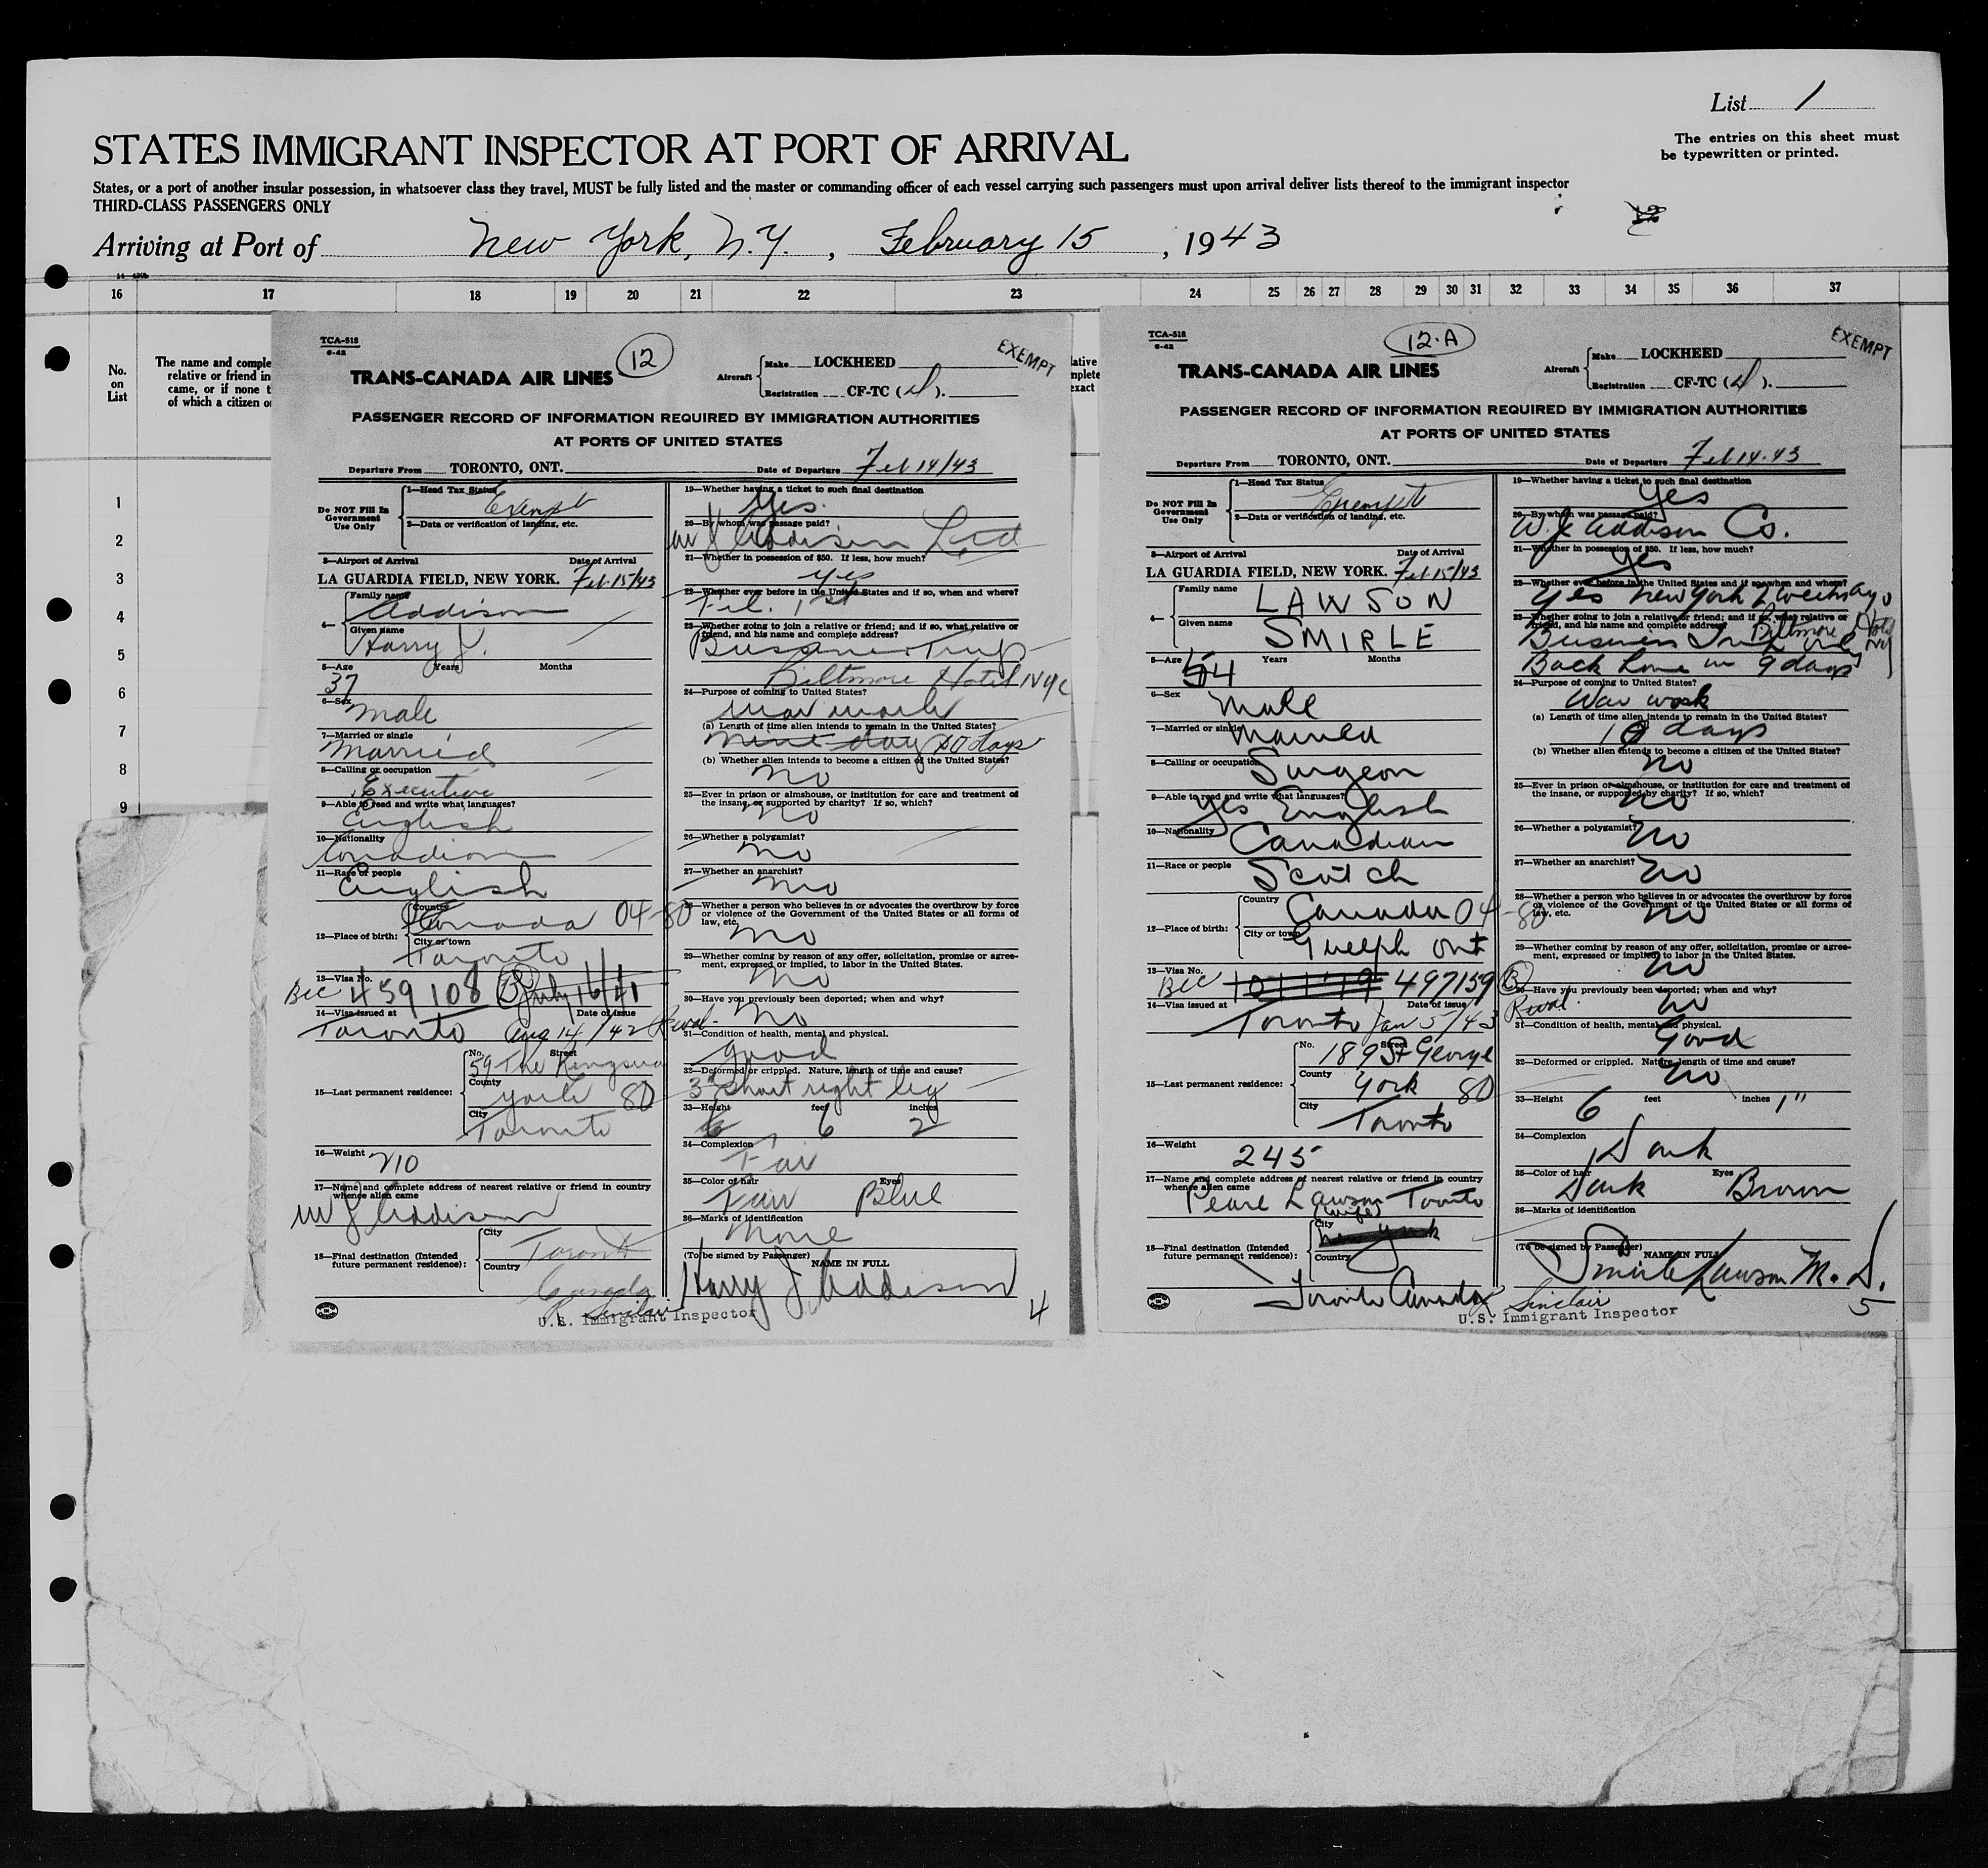 List 1
STATES IMMIGRANT INSPECTOR AT PORT OF ARRIVAL
The entries on this sheet must
be typewritten or printed.
States, or a port of another insular possession, in whatsoever class they travel, MUST be fully listed and the master or commanding officer of each vessel carrying such passengers must upon arrival deliver lists thereof to the immigrant inspector
THIRD-CLASS PASSENGERS ONLY
Arriving at Port of New York, N.Y. , February 15 , 1943
16 17 18 19 20 21 22 23 24 25 26 27 28 29 30 31 32 33 34 35 36 37
No.
on
List
The name and comple
relative or friend in
came, or if none t
of which a citizen o
1
2
3
4
5
6
7
8
9
TCA-518
6-42
12
TRANS-CANADA AIR LINES
Aircraft Make LOCKHEED
Registration CF-TC ( ).
EXEMPT
PASSENGER RECORD OF INFORMATION REQUIRED BY IMMIGRATION AUTHORITIES
AT PORTS OF UNITED STATES
Departure From TORONTO, ONT. Date of Departure Feb 14/43
Do NOT Fill In
Government
Use Only
1—Head Tax Status Exempt
2—Data or verification of landing, etc.
3—Airport of Arrival Date of Arrival
LA GUARDIA FIELD, NEW YORK. Feb 15/43
4— Family name Addison
Given name Harry J.
5—Age Years Months
37
6—Sex male
7—Married or single
Married
8—Calling or occupation
Executive
9—Able to read and write what languages?
English
10—Nationality
Canadian
11—Race or people
English
12—Place of birth: Country Canada 04-80
City or town
Toronto
13—Visa No.
BCC 459108 B July 16/41
14—Visa issued at Date of issue
Toronto Aug 14/42 Reval.
15—Last permanent residence: No. Street
59 The Kingsway
County York 80
City
Toronto
16—Weight
210
17—Name and complete address of nearest relative or friend in country
whence alien came
W J Addison
18—Final destination (Intended
future permanent residence):
City Toronto
Country
Canada
19—Whether having a ticket to such final destination
Yes.
20—By whom was passage paid?
W J Addison Ltd
21—Whether in possession of $50. If less, how much?
yes
22—Whether ever before in the United States and if so, when and where?
Feb. 1st
23—Whether going to join a relative or friend; and if so, what relative or
friend, and his name and complete address?
Business Trip
Biltmore Hotel NYC
24—Purpose of coming to United States?
War work
(a) Length of time alien intends to remain in the United States?
nine day 10 days
(b) Whether alien intends to become a citizen of the United States?
no
25—Ever in prison or almshouse, or institution for care and treatment of
the insane, or supported by charity? If so, which?
no
26—Whether a polygamist?
no
27—Whether an anarchist?
no
28—Whether a person who believes in or advocates the overthrow by force
or violence of the Government of the United States or all forms of
law, etc.
no
29—Whether coming by reason of any offer, solicitation, promise or agree-
ment, expressed or implied, to labor in the United States.
no
30—Have you previously been deported; when and why?
no
31—Condition of health, mental and physical.
good
32—Deformed or crippled. Nature, length of time and cause?
3" short right leg
33—Height feet inches
6 2
34—Complexion
Fair
35—Color of hair Eyes
Fair Blue
36—Marks of identification
None
(To be signed by Passenger) NAME IN FULL
Harry J Addison
R. Sinclair
U.S. Immigrant Inspector
4
TCA-518
6-42
12-A
TRANS-CANADA AIR LINES
Aircraft Make LOCKHEED
Registration CF-TC ( ).
EXEMPT
PASSENGER RECORD OF INFORMATION REQUIRED BY IMMIGRATION AUTHORITIES
AT PORTS OF UNITED STATES
Departure From TORONTO, ONT. Date of Departure Feb 14.43
Do NOT Fill In
Government
Use Only
1—Head Tax Status
Exempt
2—Data or verification of landing, etc.
3—Airport of Arrival Date of Arrival
LA GUARDIA FIELD, NEW YORK. Feb 15/43
4— Family name LAWSON
Given name SMIRLE
5—Age Years Months
54
6—Sex
Male
7—Married or single
Married
8—Calling or occupation
Surgeon
9—Able to read and write what languages?
Yes English
10—Nationality
Canadian
11—Race or people
Scotch
12—Place of birth: Country Canada 04-80
City or town
Guelph Ont
13—Visa No.
BCC 497159 B
14—Visa issued at Date of issue
Toronto Jan 5/43 Reval.
15—Last permanent residence: No. Street
189 St George
County
York 80
City
Toronto
16—Weight
245
17—Name and complete address of nearest relative or friend in country
whence alien came
Pearl Lawson Toronto
(wife)
18—Final destination (Intended
future permanent residence):
City
New York
Country
Toronto Canada
19—Whether having a ticket to such final destination
Yes
20—By whom was passage paid?
W.J. Addison Co.
21—Whether in possession of $50. If less, how much?
Yes
22—Whether ever before in the United States and if so, when and where?
Yes New York 2 weeks ago
23—Whether going to join a relative or friend; and if so, what relative or
friend, and his name and complete address?
Biltmore Hotel NY
Business Trip only
Back home in 9 days
24—Purpose of coming to United States?
War work
(a) Length of time alien intends to remain in the United States?
10 days
(b) Whether alien intends to become a citizen of the United States?
no
25—Ever in prison or almshouse, or institution for care and treatment of
the insane, or supported by charity? If so, which?
no
26—Whether a polygamist?
no
27—Whether an anarchist?
no
28—Whether a person who believes in or advocates the overthrow by force
or violence of the Government of the United States or all forms of
law, etc.
no
29—Whether coming by reason of any offer, solicitation, promise or agree-
ment, expressed or implied, to labor in the United States.
no
30—Have you previously been deported; when and why?
no
31—Condition of health, mental and physical.
Good
32—Deformed or crippled. Nature, length of time and cause?
no
33—Height 6 feet inches 1"
34—Complexion
Dark
35—Color of hair Eyes
Dark Brown
36—Marks of identification
(To be signed by Passenger) NAME IN FULL
Smirle Lawson M.D.
Sinclair
U.S. Immigrant Inspector
5